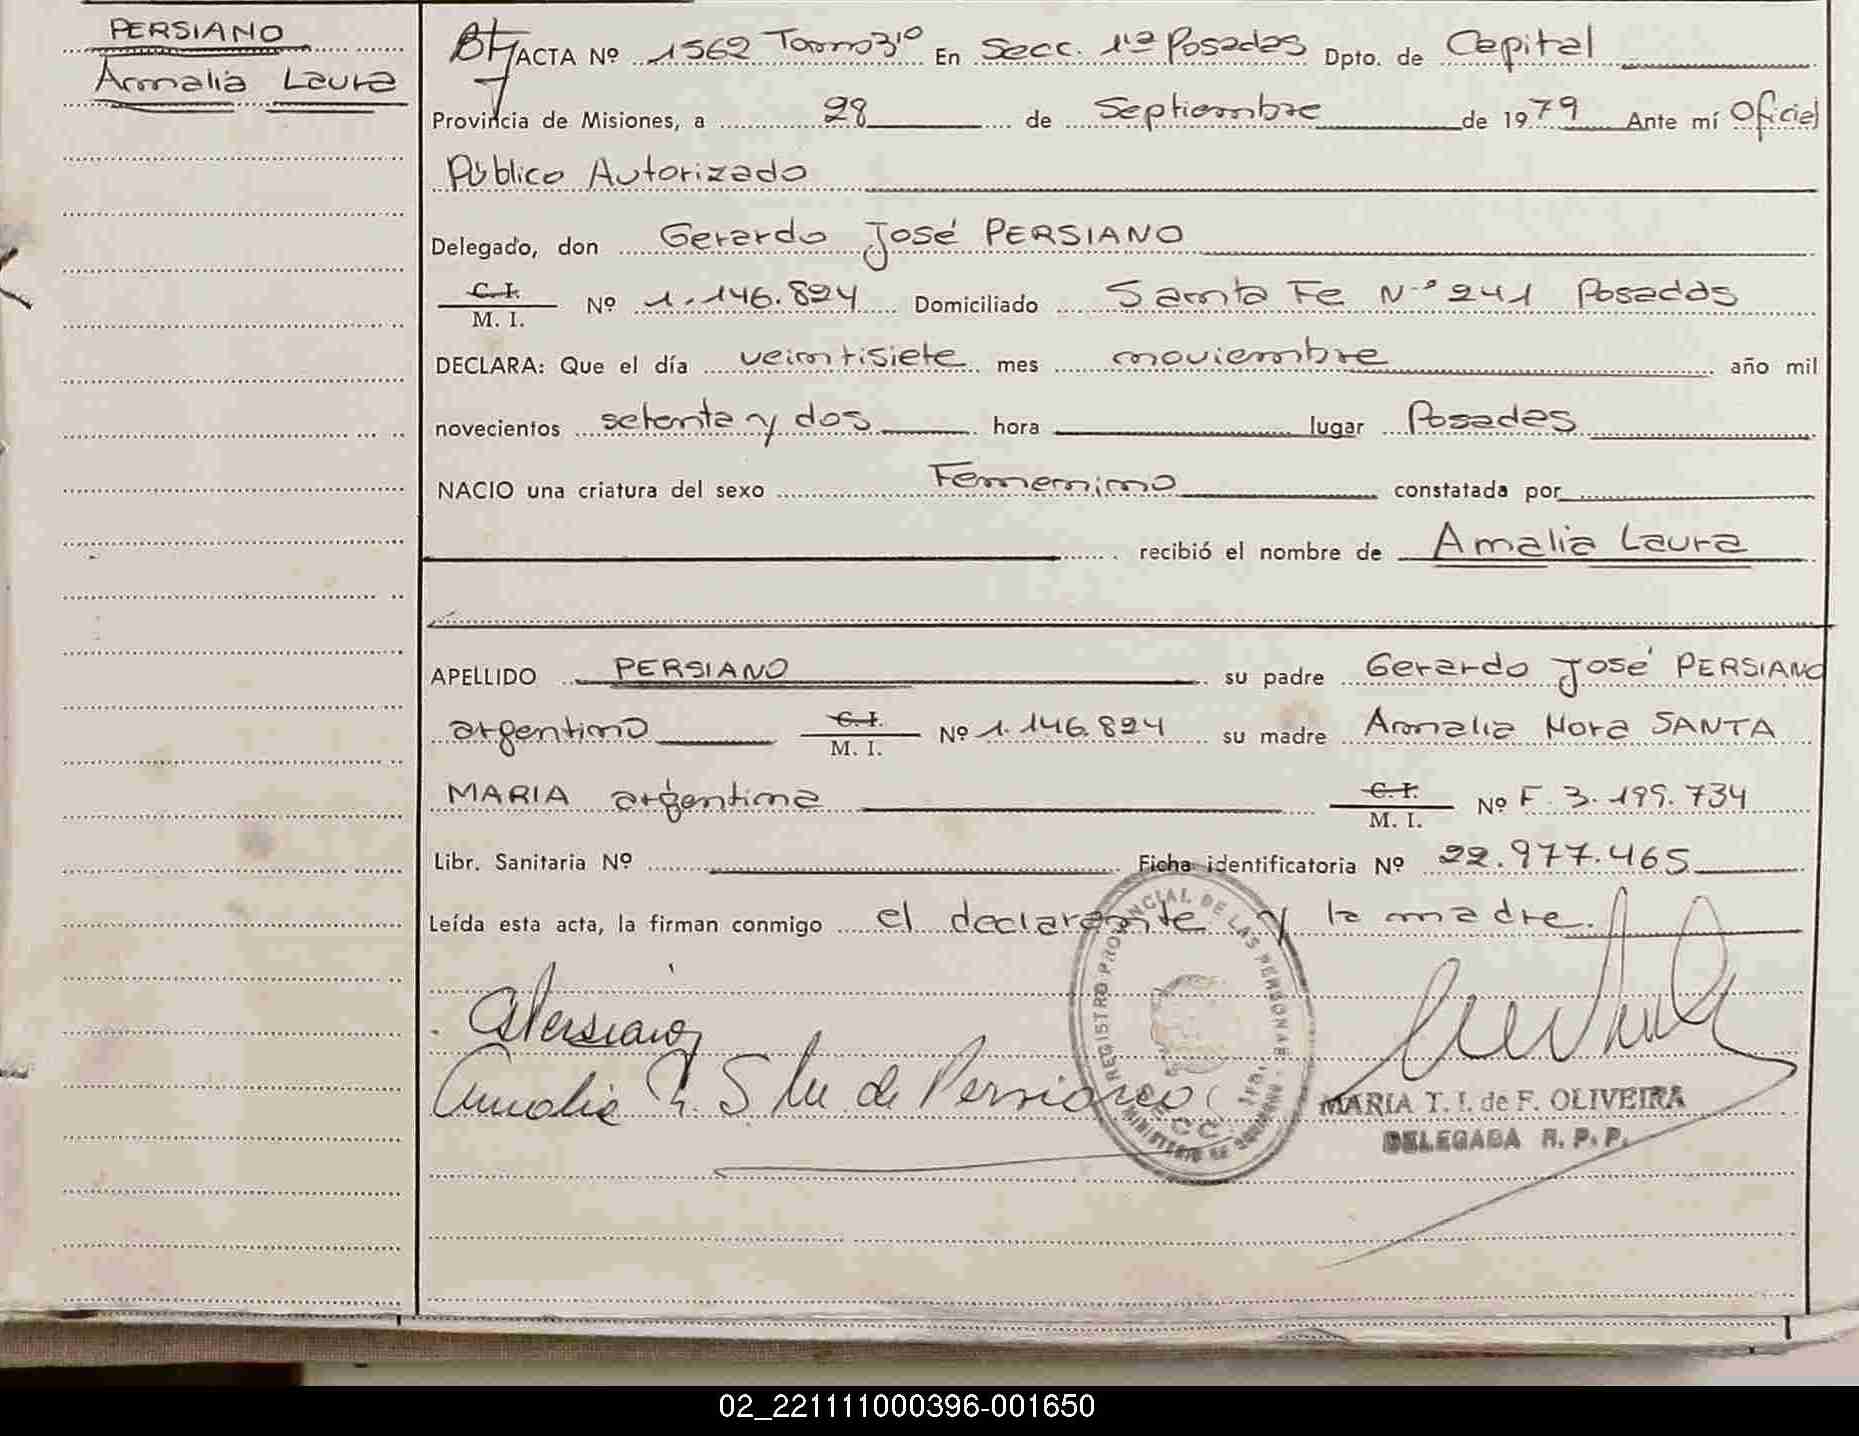 PERSIANO
Amalia Laura
ACTA Nº 1562 Tomo 3º En Secc. 1ª Posadas Dpto. de Capital
Provincia de Misiones, a 28 de Septiembre de 1979 Ante mí Oficial
Público Autorizado
Delegado, don Gerardo José PERSIANO
C. I.
M. I. Nº 1.146.824 Domiciliado Santa Fe Nº 241 Posadas
DECLARA: Que el día veintisiete mes noviembre año mil
novecientos setenta y dos hora lugar Posadas
NACIO una criatura del sexo Femenino constatada por
recibió el nombre de Amalia Laura
APELLIDO PERSIANO su padre Gerardo José PERSIANO
argentino C. I. M. I. Nº 1.146.824 su madre Amalia Nora SANTA
MARIA argentina C. I. M. I. Nº F. 3.199.734
Libr. Sanitaria Nº Ficha identificatoria Nº 22.977.465
Leída esta acta, la firman conmigo el declarante y la madre.
REGISTRO PROVINCIAL DE LAS PERSONAS
Persiano
Amalia N. S de Persiano
MARIA T. I. de F. OLIVEIRA
DELEGADA R. P. P.
02_221111000396-001650